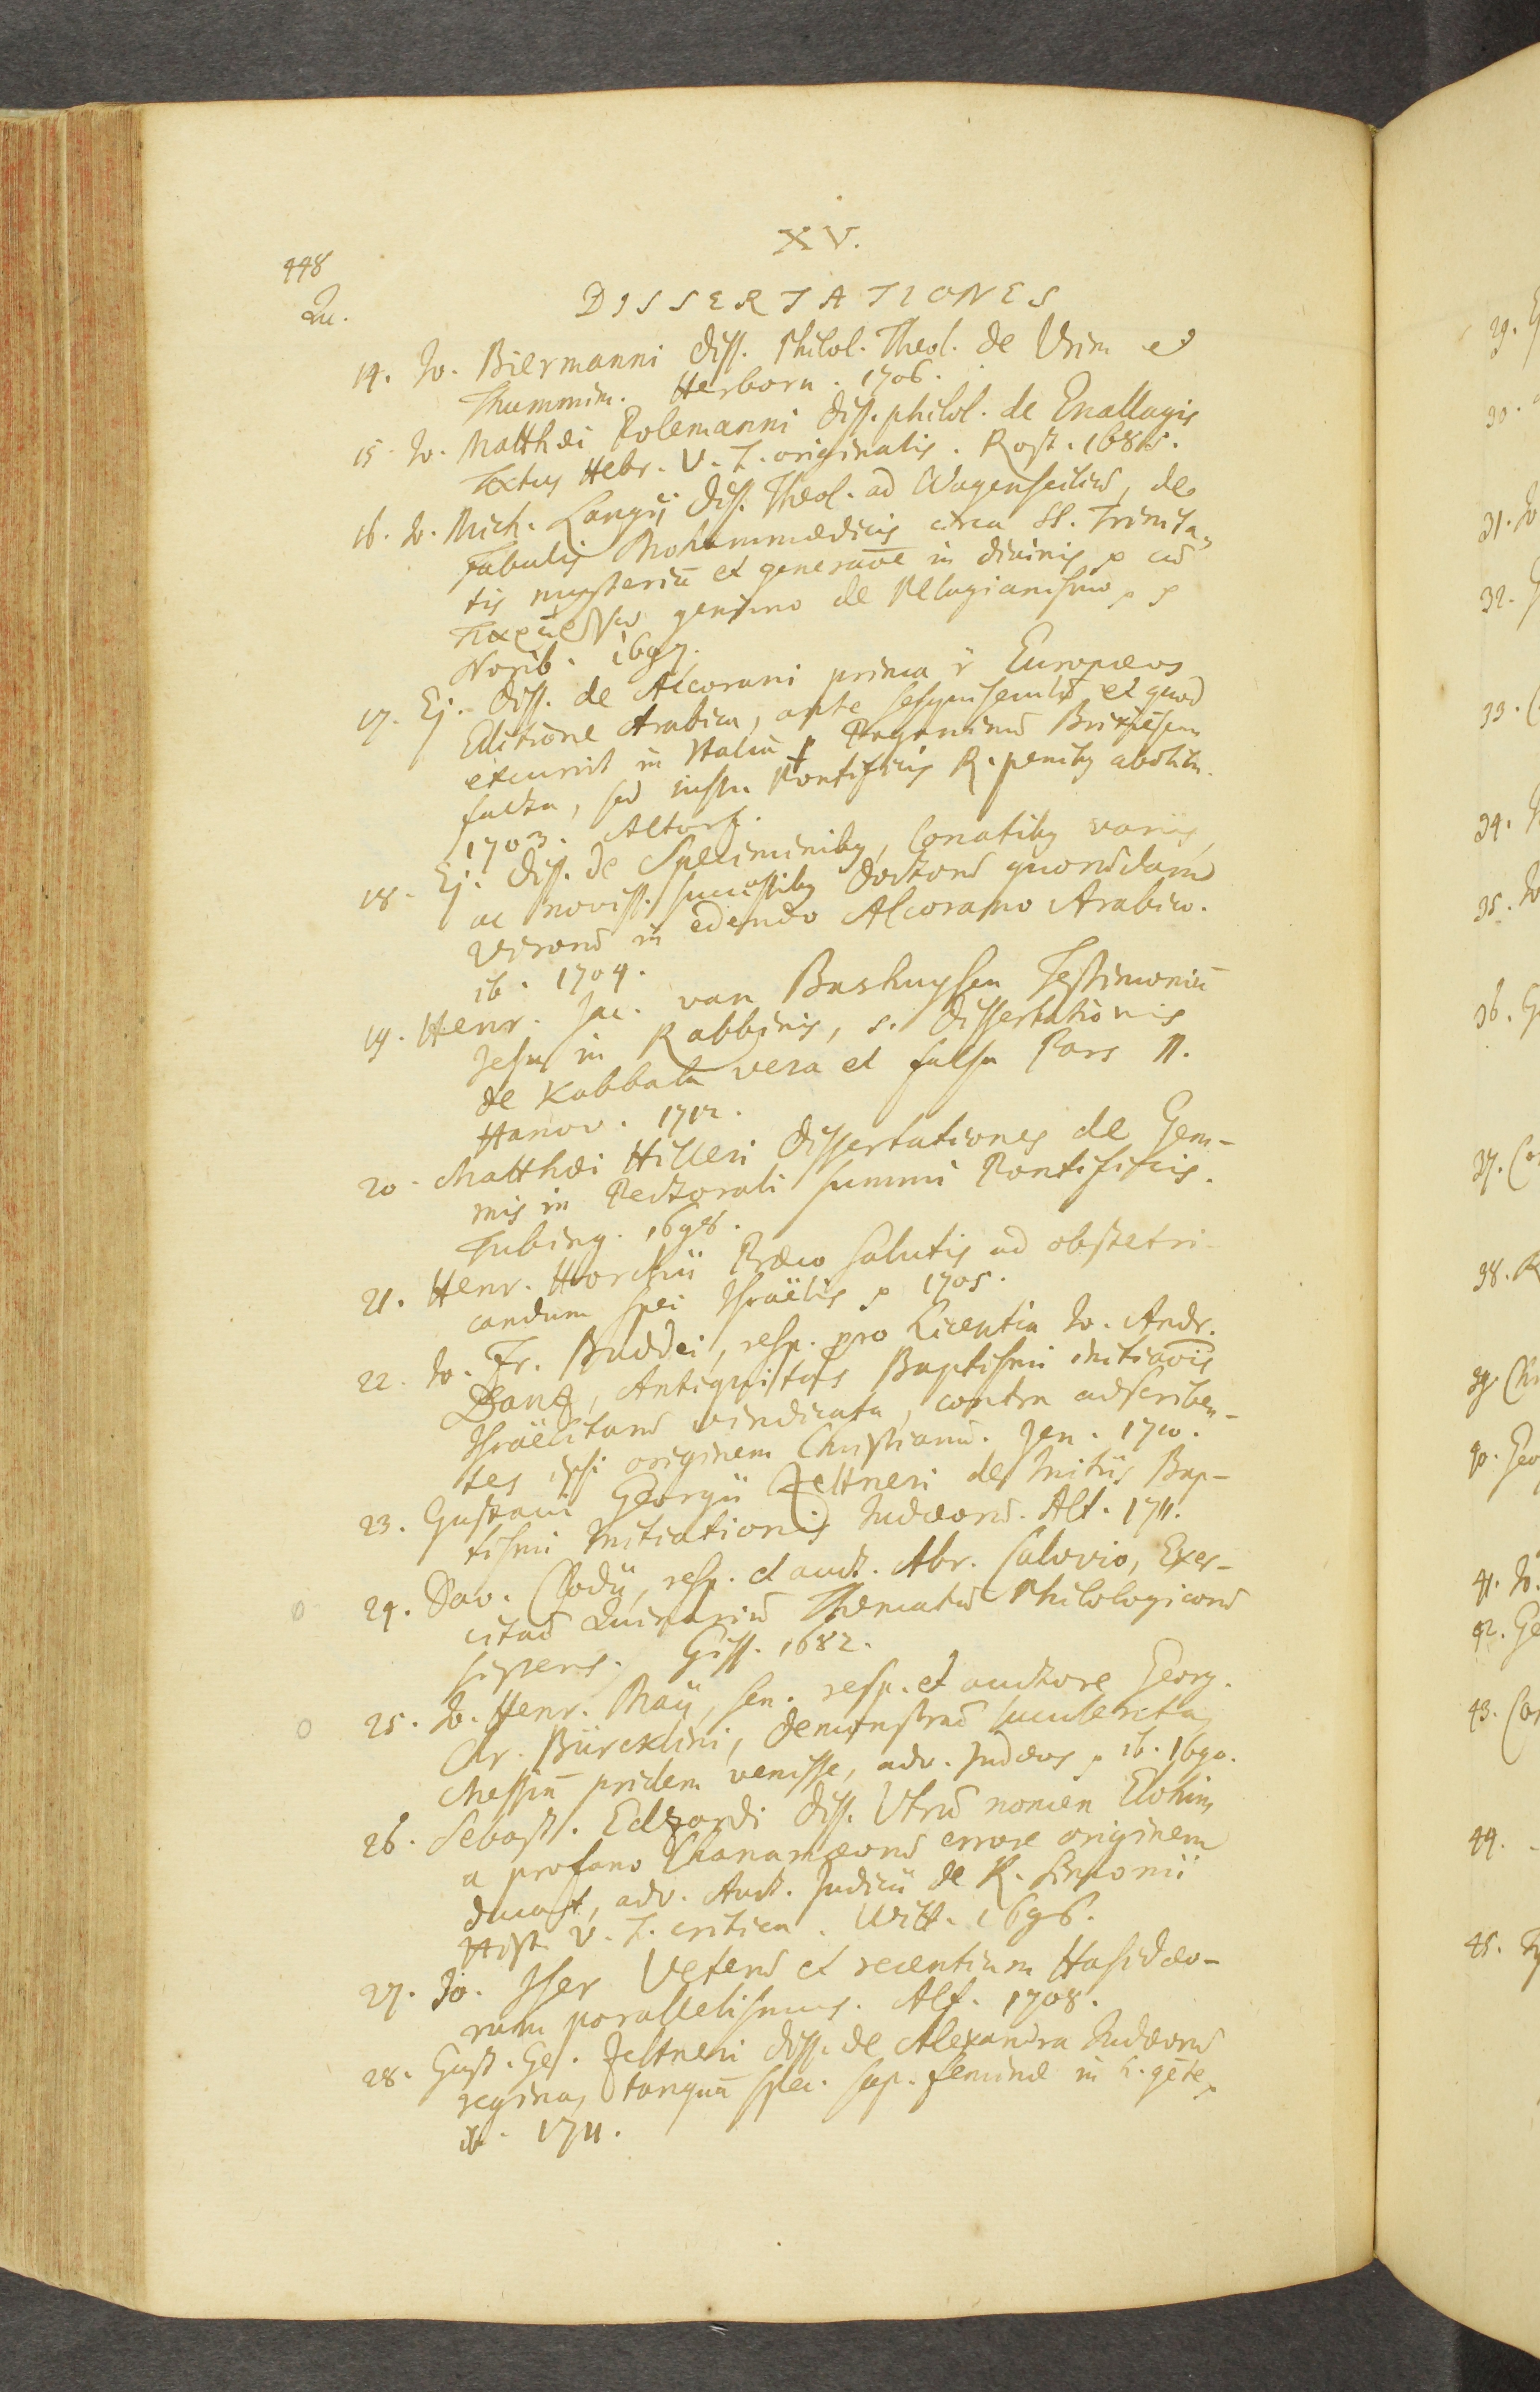 XV.
448
Qu.
DISSERTATIONES
14. Jo. Biermanni diss. Philol. Theol. de Urim et
Thummim. Herborn. 1706.
15. Jo. Matthæi Polemanni diss. philol. de Enallagis
Textus Hebr. V. T. originalis. Rost. 1685.
16. Jo. Mich. Langii diss. Theol. ad Wagenseiliū, de
Fabulis Mohammedicis circa SS. Trinita-
tis mysteriū et generaōe in divinis p cū
gemino de Pelagianismo p p
Norib. 1697.
17. Ej. diss. de Alcorani prima īr Europæos
Editione Arabica, ante sesquiseculū et quod
excurrit in Italiā p Paganinū Brixiēsem
facta, sed jussu Pontificis R. penitꝰ abolita.
1703. Altorf.
18. Ej. diss. de Speciminibꝰ, Conatibꝰ variis,
ac noviss. successibꝰ doctorū quorūdam
virorū in edendo Alcorano Arabico.
ib. 1704.
19. Henr. Jac. van Bashuysen Testimoniū
Jesu in Rabbinis, s. dissertationis
de Kabbala vera et falsa Pars II.
Hanov. 1712.
20. Matthæi Hilleri dissertationes de Gem-
mis in Pectorali summi Pontificis.
Tubing. 1698.
21. Henr. Horchii Præco salutis ad obstetri-
candum spei Israëlis p 1705.
22. Jo. Fr. Buddei, resp. pro Licentia Jo. Andr.
Danz, Antiquitas Baptismi initiaōis
Israëlitarū vindicata, contra adscriben-
tes ipsi originem Christianū. Jen. 1710.
23. Gustavi Georgii Zeltneri de Initiis Bap-
tismi Initiationis Judæorū. Alt. 1711.
24. Dav. Clodii, resp. et auct. Abr. Calovio, Exer-
citaō Quinariū Thematū Philologicorū
sistens. Giss. 1682.
25. Jo. Henr. Maji, sen. resp. et auctore Georg.
Chr. Bürcklini, demonstraō luculenta,
Messiā pridem venisse, adv. Judæos p ib. 1690.
26. Sebast. Edzardi diss. Utrū nomen Elohim
a profano Chananæorū errore originem
ducat, adv. Auct. Judicii de R. Simonii
Hist. V. T. critica. Witt. 1696.
27. Jo. Iser Veterū et recentium Hasidæo-
rum parallelismus. Alt. 1708.
28. Gust. Ge. Zeltneri diss. de Alexandra Judæorū
regina, tanquā spec. sap. feminæ in h. gēte p
ib. 1711.
29.
30.
31. Jo
32. G
33. C
34.
35. Jo
36. G
37. Co
38. R
39. Chr
40. Geo
41. Jo.
42. Ge
43. Co
44.
45.